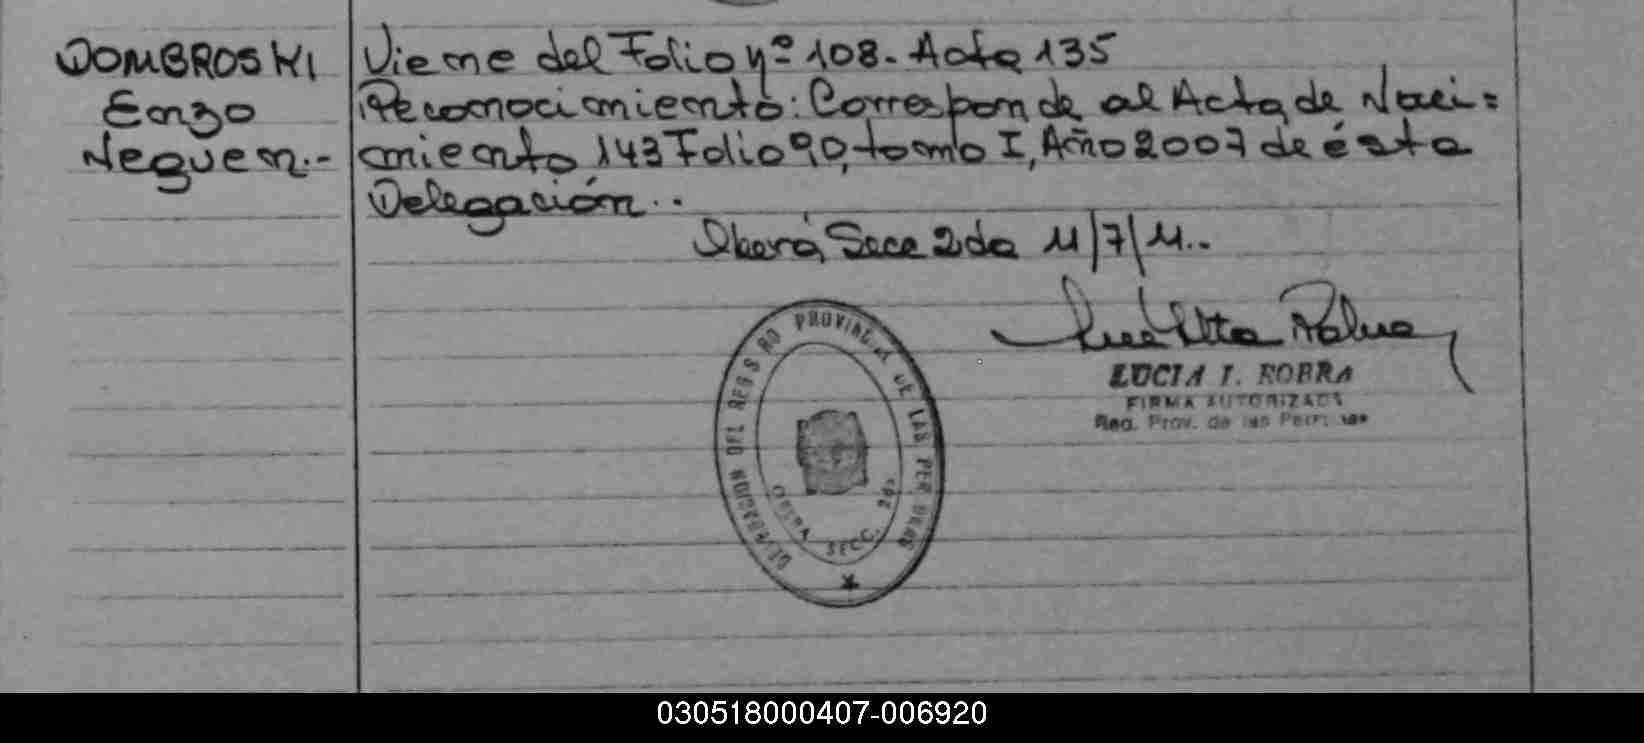 DOMBROSKI
Enzo
Neguen.-
Viene del Folio nº 108.- Acta 135
Reconocimiento: Corresponde al Acta de Naci=
miento 143 Folio 90, tomo I, Año 2007 de ésta
Delegación..
Oberá, Secc 2da 11/7/11..
LUCIA I. ROBRA
FIRMA AUTORIZADA
Reg. Prov. de las Personas
DELEGACION DEL REGISTRO PROVINCIAL DE LAS PERSONAS
OBERA SECC. 2da
030518000407-006920